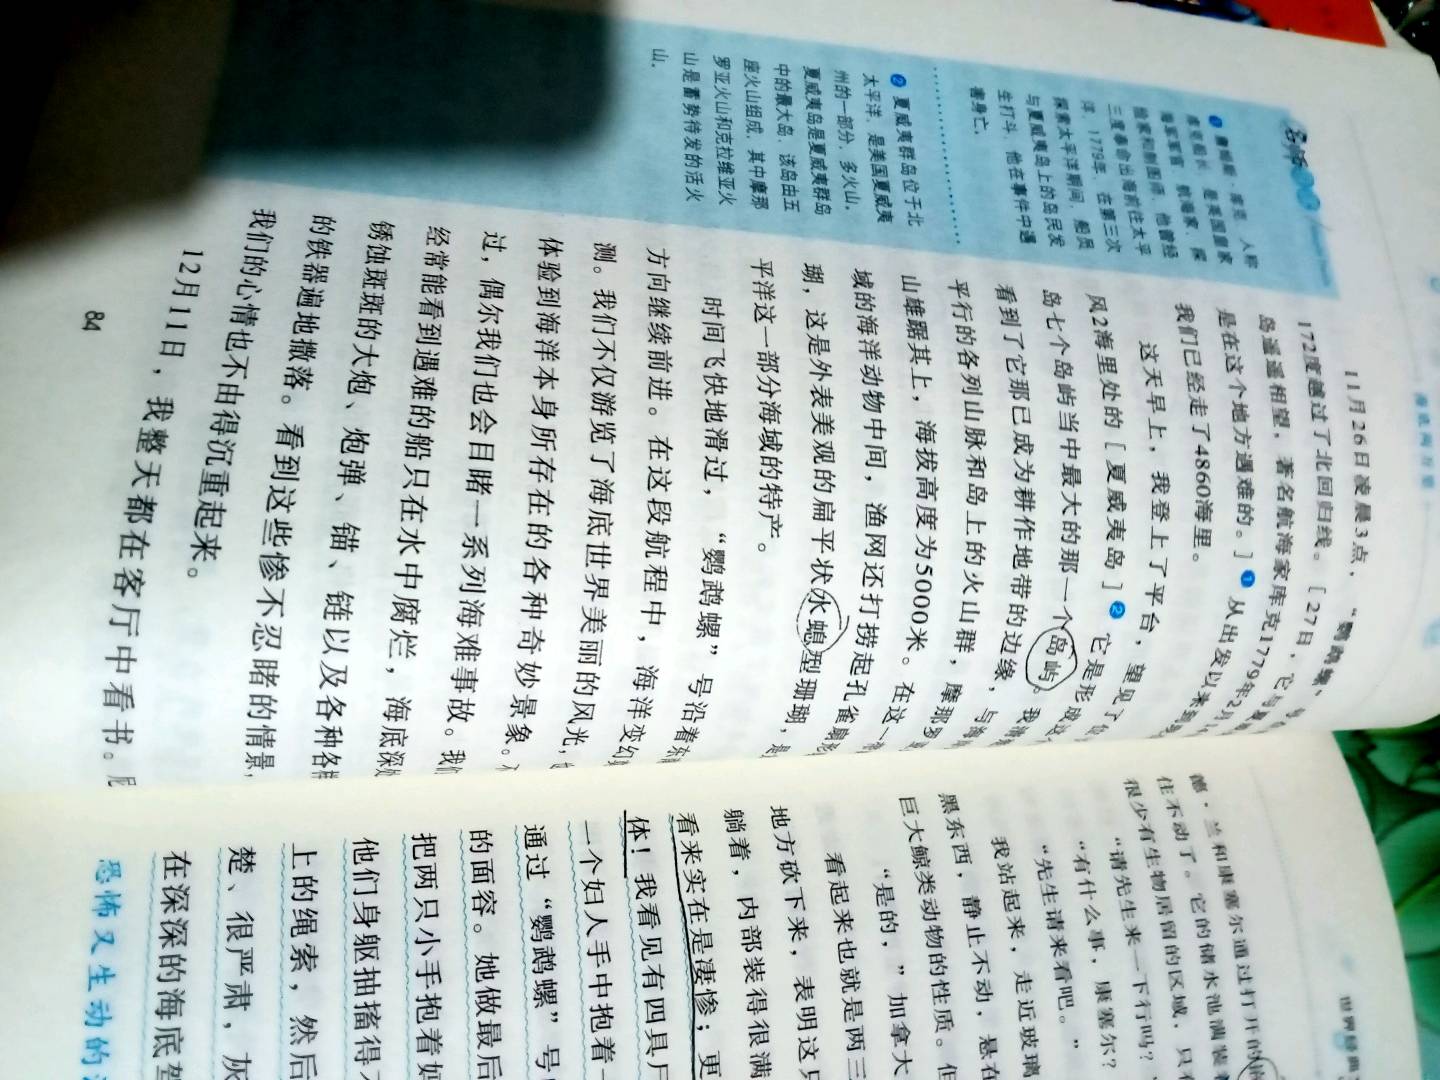 海底两万里
11月26日凌晨3点，“鹦鹉螺”号在
172度越过了北回归线。［27日，它与
岛遥遥相望，著名航海家库克1779年2月
是在这个地方遇难的。］❶从出发以来到
我们已经走了4860海里。
这天早上，我登上了平台，望见了
风2海里处的［夏威夷岛］❷它是形成
岛七个岛屿当中最大的那一个岛屿。我
看到了它那已成为耕作地带的边缘，与海
平行的各列山脉和岛上的火山群，摩那
山雄踞其上，海拔高度为5000米。在这一
域的海洋动物中间，渔网还打捞起孔雀
瑚，这是外表美观的扁平状水螅型珊瑚，是
平洋这一部分海域的特产。
时间飞快地滑过，“鹦鹉螺”号沿着东
方向继续前进。在这段航程中，海洋变幻
测。我们不仅游览了海底世界美丽的风光，
体验到海洋本身所存在的各种奇妙景象。
过，偶尔我们也会目睹一系列海难事故。我们
经常能看到遇难的船只在水中腐烂，海底深处
锈蚀斑斑的大炮、炮弹、锚、链以及各种各样
的铁器遍地撒落。看到这些惨不忍睹的情景，
我们的心情也不由得沉重起来。
12月11日，我整天都在客厅中看书。尼
❶詹姆斯·库克，人称
库克船长，是英国皇家
海军军官、航海家、探
险家和制图师，他曾经
三度奉命出海前往太平
洋，1779年，在第三次
探索太平洋期间，船员
与夏威夷岛上的岛民发
生打斗，他在事件中遇
害身亡。
❷夏威夷群岛位于北
太平洋，是美国夏威夷
州的一部分，多火山。
夏威夷岛是夏威夷群岛
中的最大岛，该岛由五
座火山组成，其中摩那
罗亚火山和克拉维亚火
山是蓄势待发的活火
山。
84
世界经典
德·兰和康塞尔通过打开的
住不动了。它的储水池满装
很少有生物居留的区域，只有
“请先生来一下行吗？
“有什么事，康塞尔？
“先生请来看吧。”
我站起来，走近玻璃
黑东西，静止不动，悬在
巨大鲸类动物的性质。但
“是的，”加拿大
看起来也就是两三
地方砍下来，表明这只
躺着，内部装得很满
看来实在是凄惨；更
体！我看见有四具尸
一个妇人手中抱着一
通过“鹦鹉螺”号
的面容。她做最后
把两只小手抱着妈
他们身躯抽搐得
上的绳索，然后
楚、很严肃，灰
在深深的海底驾
恐怖又生动的